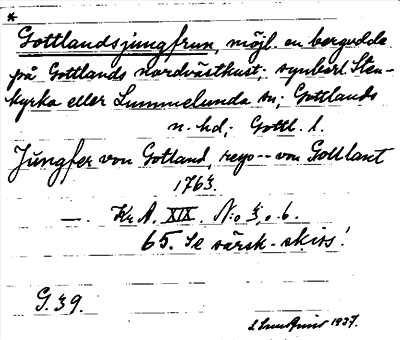 *
Gottlandsjungfrun, möjl. en bergudde
på Gottlands nordvästkust; synberl. Sten-
kyrka eller Lummelunda sn; Gottlands
n. hd; Gottl. l.
Jungfer von Gotland, von Gottlant
1763.
—. Kr. A. XIX. N:o 3, o. 6.
65. Se särsk. skiss!
G. 39.
1937.